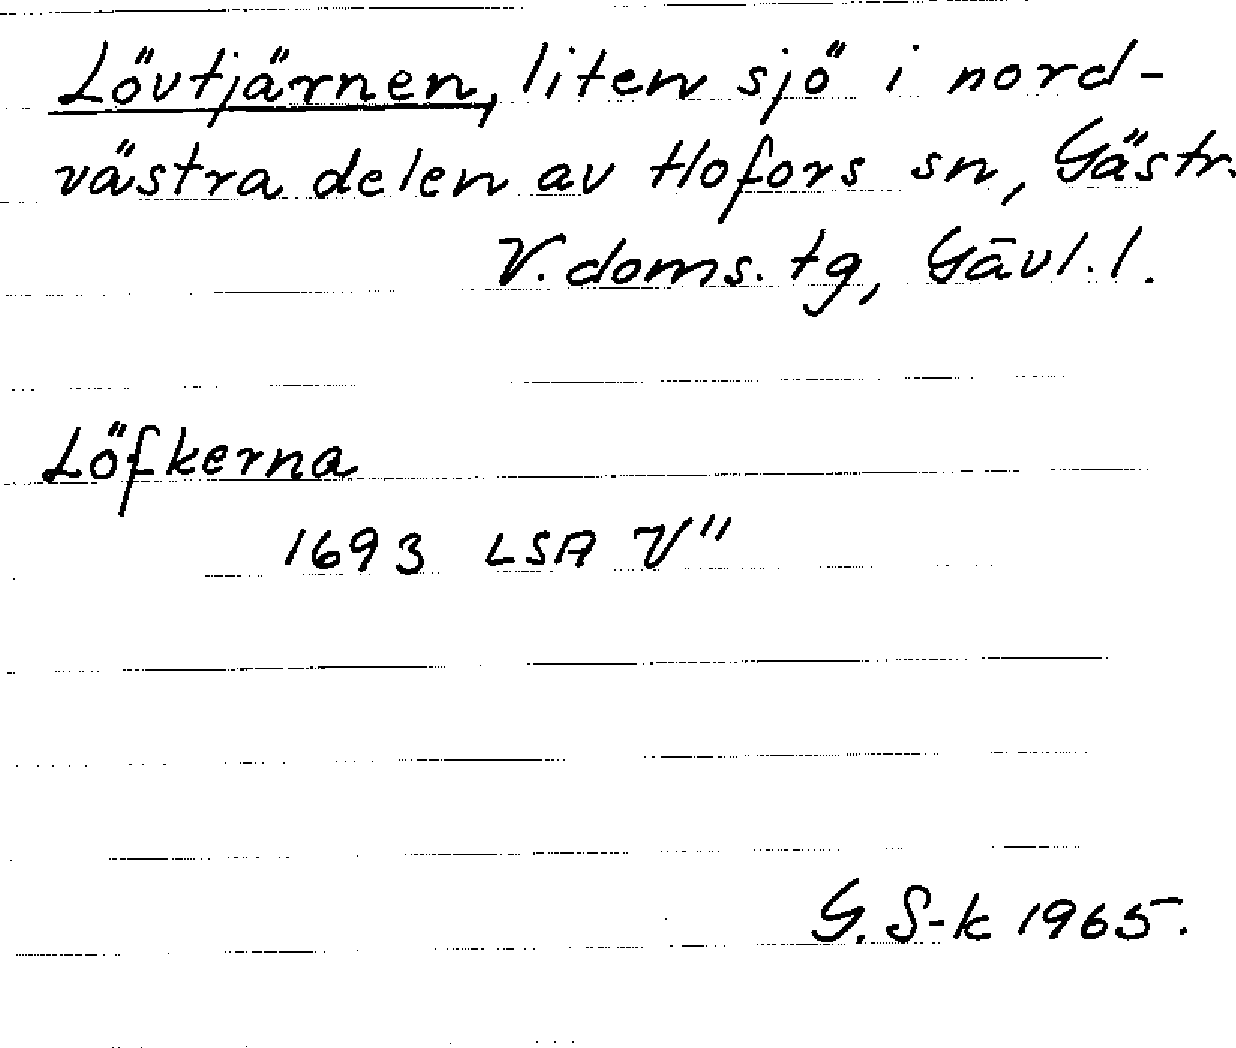 Lövtjärnen, liten sjö i nord-
västra delen av Hofors sn, Gästr.
V. doms. tg, Gävl. l.
Löfkerna
1693 LSA V"
G. S-k 1965.